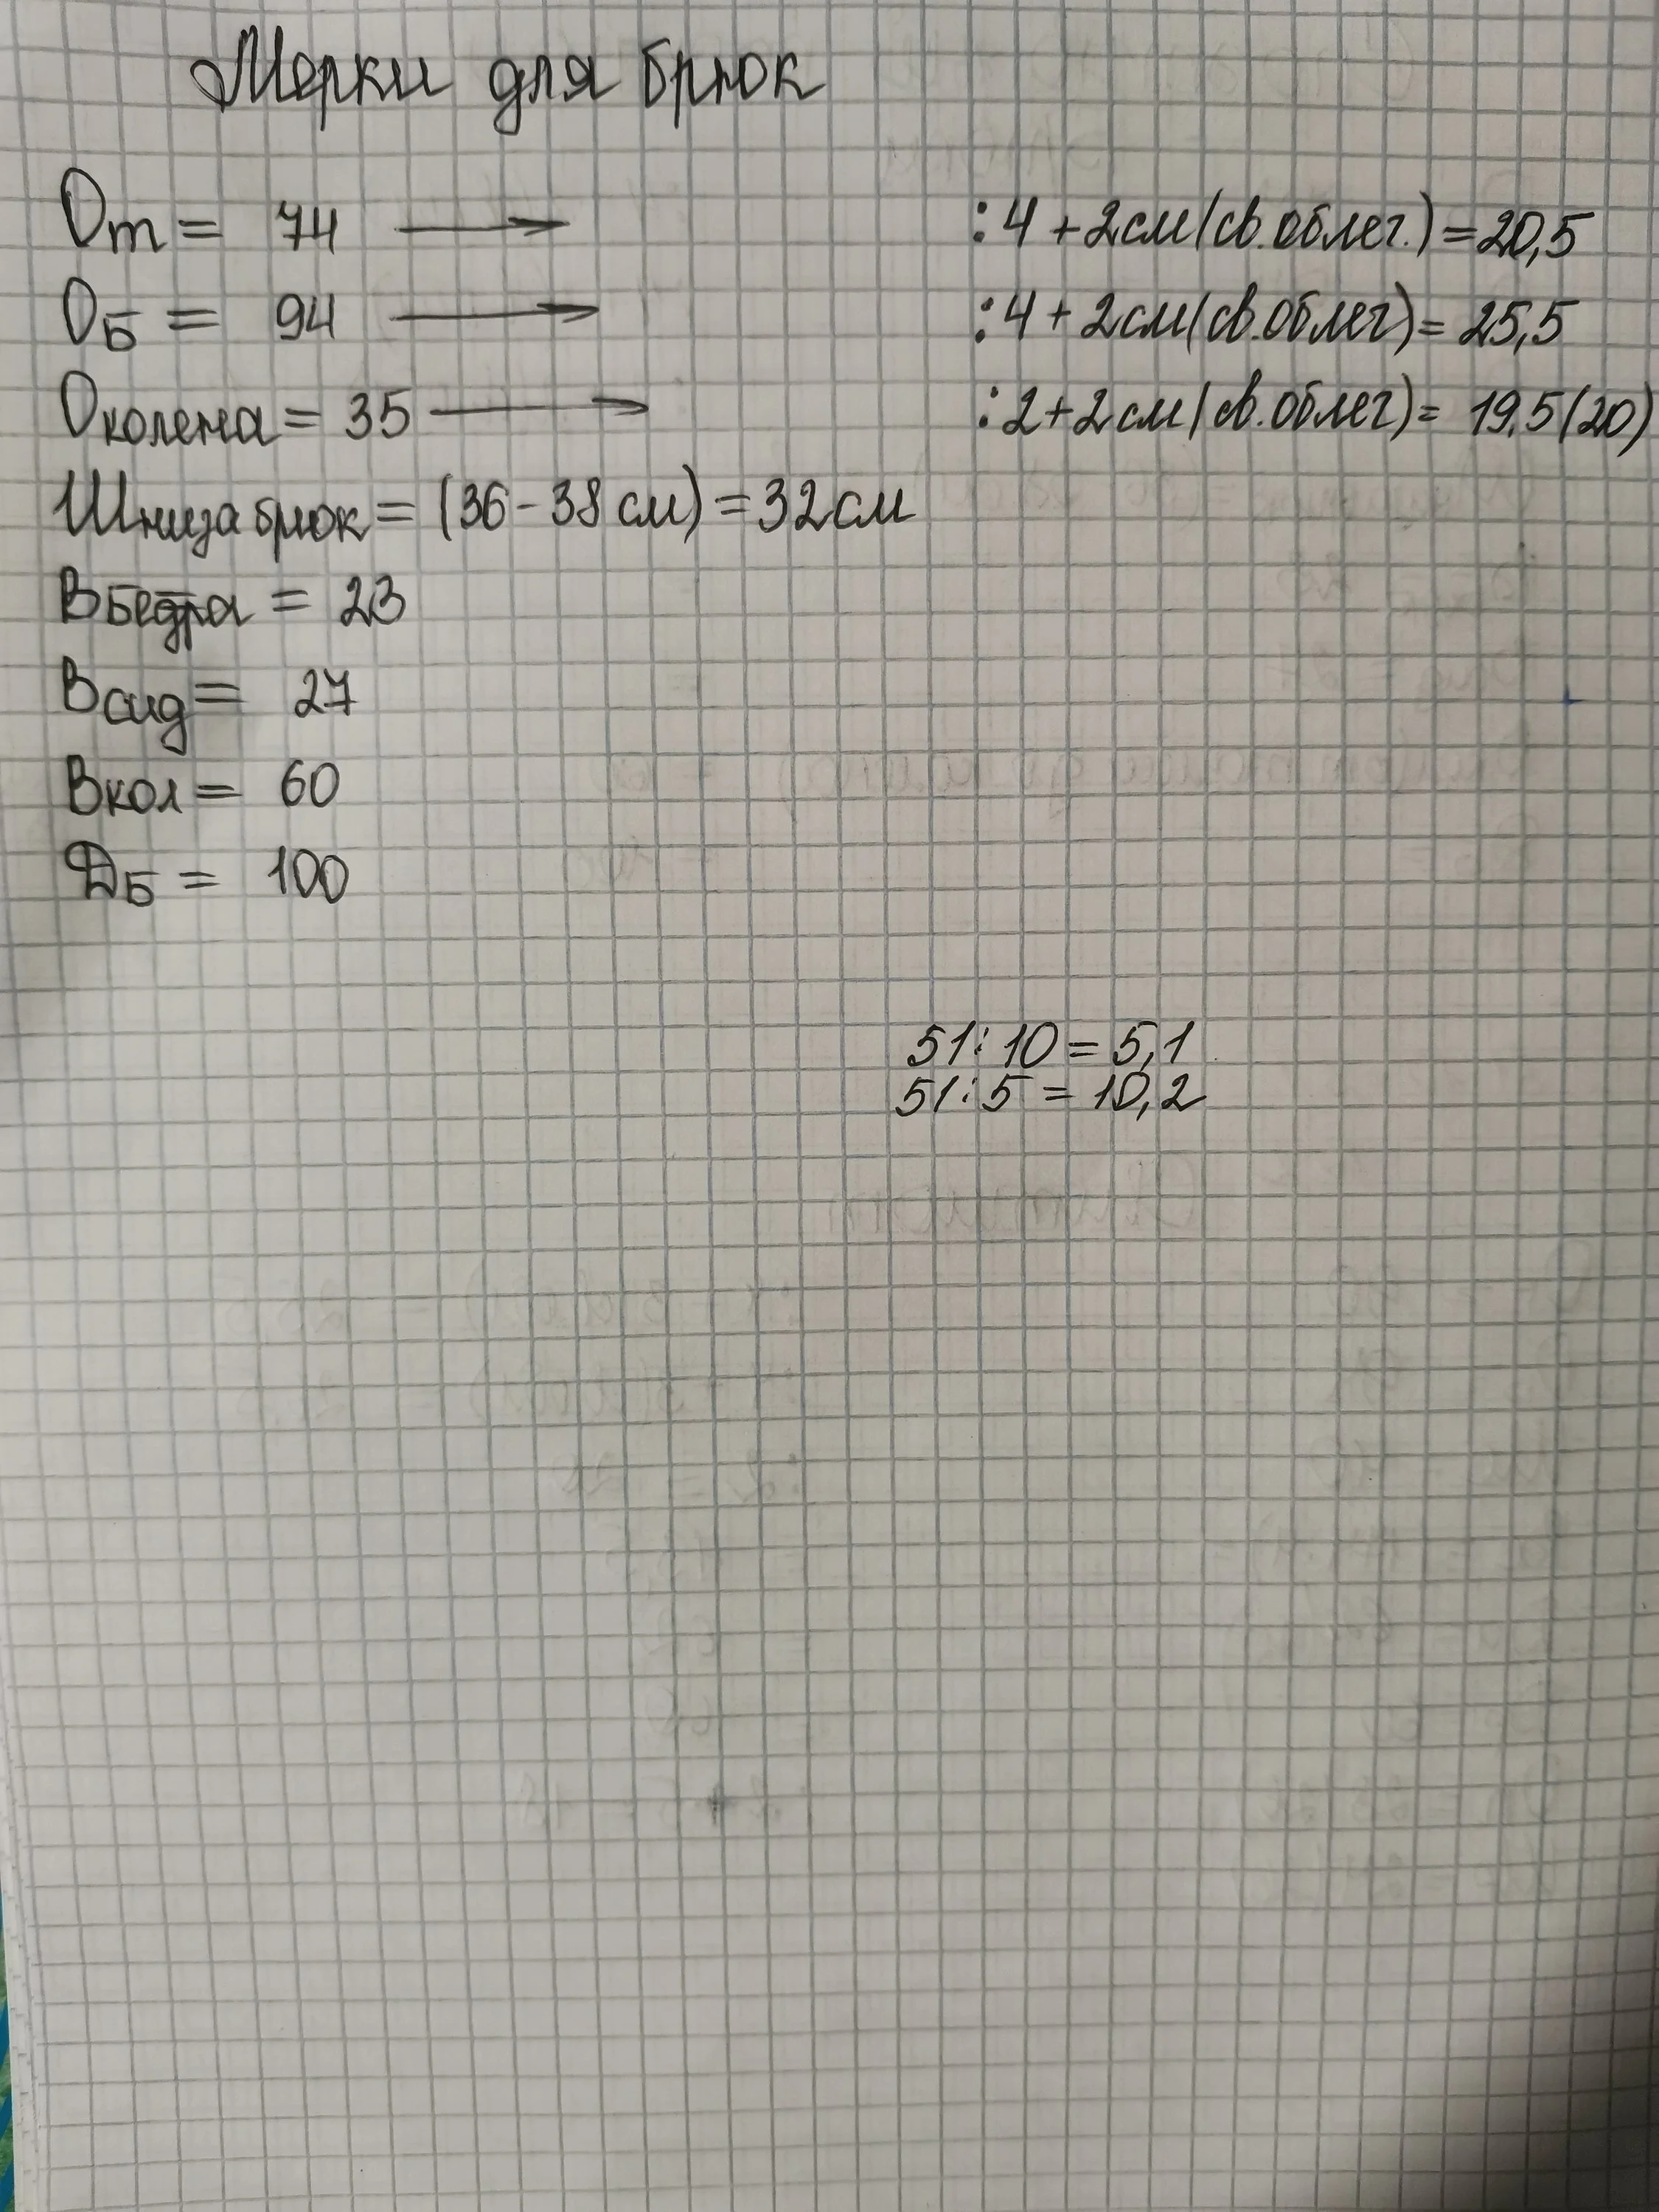 Мерки для брюк
От = 74 → :4 + 2см(св.облег.) = 20,5
ОБ = 94 → :4 + 2см(св.облег) = 25,5
Околена = 35 → :2 + 2см(св.облег) = 19,5(20)
Шниза брюк = (36 - 38 см) = 32см
Вбедра = 23
Всид = 27
Вкол = 60
ДБ = 100
51:10 = 5,1
51:5 = 10,2